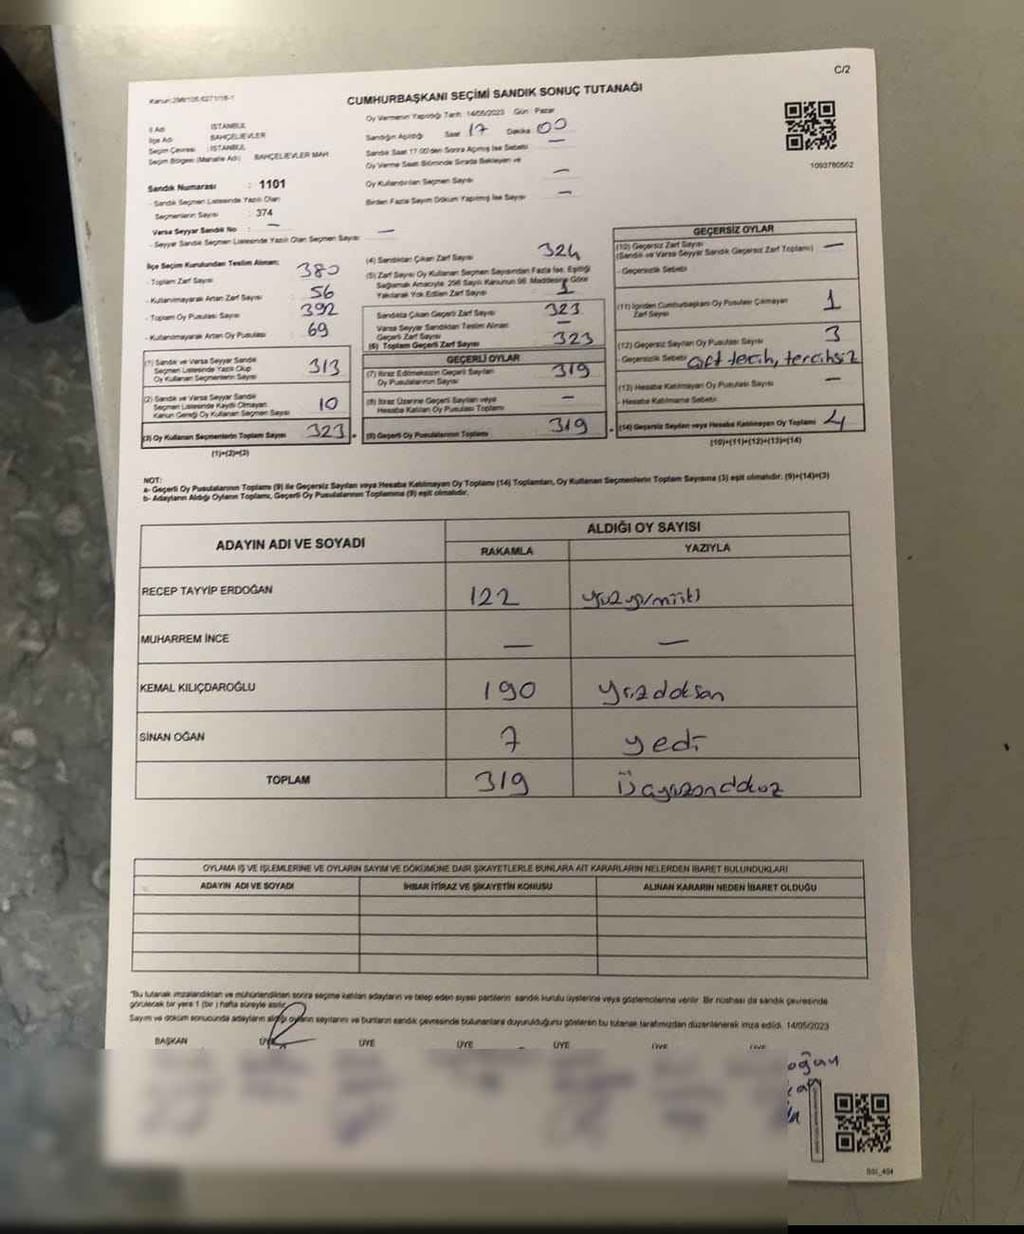 C/2
CUMHURBAŞKANI SEÇİMİ SANDIK SONUÇ TUTANAĞI
Oy Vermenin Yapıldığı Tarih : 14/05/2023 Gün : Pazar
Sandığın Açıldığı Saat 17 Dakika 00
Sandık Saat 17:00'den Sonra Açılmış İse Sebebi —
Oy Verme Saati Bitiminde Sırada Bekleyen ve
Oy Kullandırılan Seçmen Sayısı —
Birden Fazla Sayım Döküm Yapılmış İse Sayısı —
1093780562
İl Adı : İSTANBUL
İlçe Adı : BAHÇELİEVLER
Seçim Çevresi : İSTANBUL
Seçim Bölgesi (Mahalle Adı) : BAHÇELİEVLER MAH.
Sandık Numarası : 1101
- Sandık Seçmen Listesinde Yazılı Olan
Seçmenlerin Sayısı : 374
Varsa Seyyar Sandık No : —
- Seyyar Sandık Seçmen Listesinde Yazılı Olan Seçmen Sayısı : —
İlçe Seçim Kurulundan Teslim Alınan;
- Toplam Zarf Sayısı 380
- Kullanılmayarak Artan Zarf Sayısı 56
- Toplam Oy Pusulası Sayısı 392
- Kullanılmayarak Artan Oy Pusulası 69
(1) Sandık ve Varsa Seyyar Sandık
Seçmen Listesinde Yazılı Olup
Oy Kullanan Seçmenlerin Sayısı 313
(2) Sandık ve Varsa Seyyar Sandık
Seçmen Listesinde Kayıtlı Olmayan
Kanun Gereği Oy Kullanan Seçmen Sayısı 10
(3) Oy Kullanan Seçmenlerin Toplam Sayısı 323
(1)+(2)=(3)
(4) Sandıktan Çıkan Zarf Sayısı 324
(5) Zarf Sayısı Oy Kullanan Seçmen Sayısından Fazla İse, Eşitliği
Sağlamak Amacıyla, 298 Sayılı Kanunun 98. Maddesine Göre
Yakılarak Yok Edilen Zarf Sayısı 1
Sandıkta Çıkan Geçerli Zarf Sayısı 323
Varsa Seyyar Sandıktan Teslim Alınan
Geçerli Zarf Sayısı —
(6) Toplam Geçerli Zarf Sayısı 323
GEÇERLİ OYLAR
(7) İtiraz Edilmeksizin Geçerli Sayılan
Oy Pusulalarının Sayısı 319
(8) İtiraz Üzerine Geçerli Sayılan veya
Hesaba Katılan Oy Pusulası Toplamı —
(9) Geçerli Oy Pusulalarının Toplamı 319
GEÇERSİZ OYLAR
(10) Geçersiz Zarf Sayısı
(Sandık ve Varsa Seyyar Sandık Geçersiz Zarf Toplamı) —
- Geçersizlik Sebebi
(11) İçinden Cumhurbaşkanı Oy Pusulası Çıkmayan
Zarf Sayısı 1
(12) Geçersiz Sayılan Oy Pusulası Sayısı 3
- Geçersizlik Sebebi çift tecih, tercihsiz
(13) Hesaba Katılmayan Oy Pusulası Sayısı —
- Hesaba Katılmama Sebebi
(14) Geçersiz Sayılan veya Hesaba Katılmayan Oy Toplamı 4
(10)+(11)+(12)+(13)=(14)
NOT:
a- Geçerli Oy Pusulalarının Toplamı (9) ile Geçersiz Sayılan veya Hesaba Katılmayan Oy Toplamı (14) Toplamları, Oy Kullanan Seçmenlerin Toplam Sayısına (3) eşit olmalıdır. (9)+(14)=(3)
b- Adayların Aldığı Oyların Toplamı, Geçerli Oy Pusulalarının Toplamına (9) eşit olmalıdır.
ADAYIN ADI VE SOYADI ALDIĞI OY SAYISI
RAKAMLA YAZIYLA
RECEP TAYYİP ERDOĞAN 122 yüzyirmiiki
MUHARREM İNCE — —
KEMAL KILIÇDAROĞLU 190 yüzdoksan
SİNAN OĞAN 7 yedi
TOPLAM 319
OYLAMA İŞ VE İŞLEMLERİNE VE OYLARIN SAYIM VE DÖKÜMÜNE DAİR ŞİKAYETLERLE BUNLARA AİT KARARLARIN NELERDEN İBARET BULUNDUKLARI
ADAYIN ADI VE SOYADI İHBAR İTİRAZ VE ŞİKAYETİN KONUSU ALINAN KARARIN NEDEN İBARET OLDUĞU
"Bu tutanak imzalandıktan ve mühürlendikten sonra seçime katılan adayların ve talep eden siyasi partilerin sandık kurulu üyelerine veya gözlemcilerine verilir. Bir nüshası da sandık çevresinde
görülecek bir yere 1 (bir) hafta süreyle asılır.
Sayım ve döküm sonucunda adayların aldığı oyların sayılarını ve bunların sandık çevresinde bulunanlara duyurulduğunu gösteren bu tutanak tarafımızdan düzenlenerek imza edildi. 14/05/2023
BAŞKAN ÜYE ÜYE ÜYE ÜYE ÜYE ÜYE